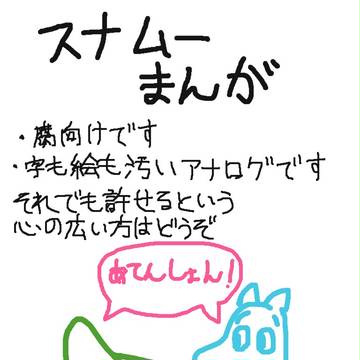 スナムー
まんが
・腐向けです
・字も絵も汚いアナログです
それでも許せるという
心の広い方はどうぞ
あてんしょん！